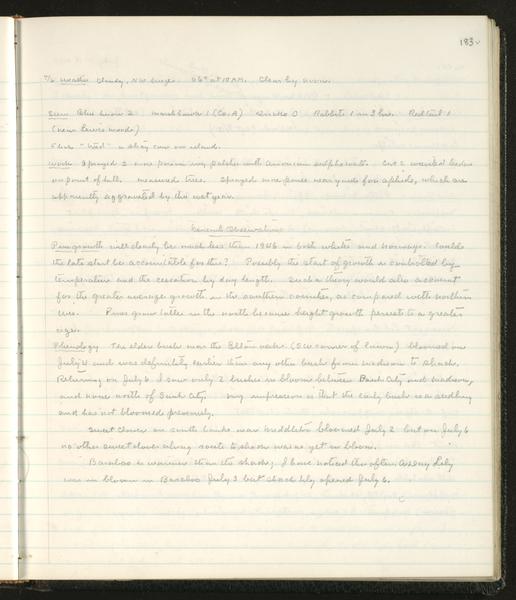 183
7/6 Weather Cloudy, NW breeze. 56° at 10 AM. Clear by noon.
Seen Blue heron 2 marsh hawk 1 (Co. A) Quail 0 Rabbits 1 in 3 hrs. Redtail 1
(near Lewis woods)
Flick "tried" a shay cow on island.
Work Sprayed 2 more poison ivy patches with ammonium sulphamate. Cut 2 trees
on point of hill. measured trees. Sprayed more pines near yard for aphids, which are
apparently aggravated by this wet year.
General Observations
Pine growth will clearly be much less than 1946 in both whites and Norways. Could
the late start be accountable for this? Possibly the start of growth is controlled by
temperature and the cessation by day length. Such a theory would also account
for the greater average growth in the southern counties, as compared with northern
ones. Pines grow taller in the north because height growth persists to a greater
age.
Phenology The elder bush near the Elton oaks (SW corner of ) bloomed on
July 4 and was definitely earlier than any other bush from Madison to Shack.
Returning on July 6 I saw only 2 bushes in bloom between Sauk City and Madison,
and none north of Sauk City. My impression is that the early bush is a seedling
and has not bloomed previously.
Sweet clover on south banks near Middleton bloomed July 2 but on July 6
no other sweet clover along route to shack was as yet in bloom.
Baraboo is warmer than the shack; I have noticed this often. Lily
was in bloom in Baraboo July 3 but shack lily opened July 6.